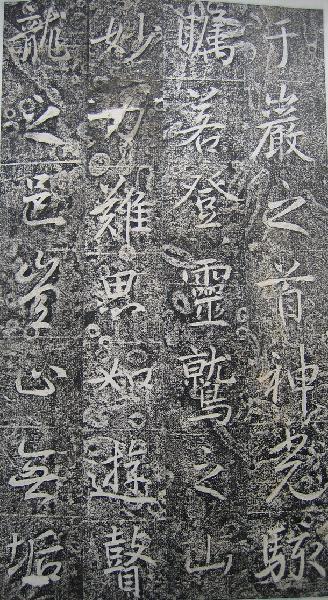 于巖之首神光駭
矚若登靈鷲之山
妙力難思如遊瞽
龍之邑豈止無垢